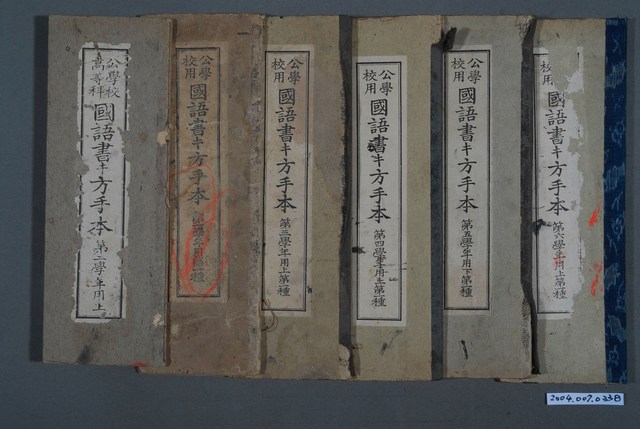 公學校
高等科
國語書キ方手本 第二學年用上
公學
校用
國語書キ方手本
公學
校用
國語書キ方手本 第三學年用上第種
公學
校用
國語書キ方手本 第四學年用上第種
公學
校用
國語書キ方手本 第五學年用下第種
校用
國語書キ方手本 第六學年用上第種
2004.007.0338